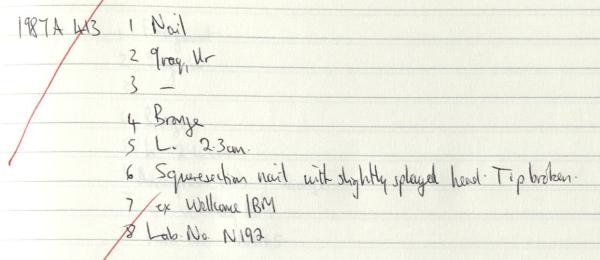 1987A 443 1 Nail
2 Iraq, Ur
3 —
4 Bronze
5 L. 2.3cm.
6 Squaresection nail with slightly splayed head. Tip broken.
7 ex Wellcome/BM
8 Lab. No. N192